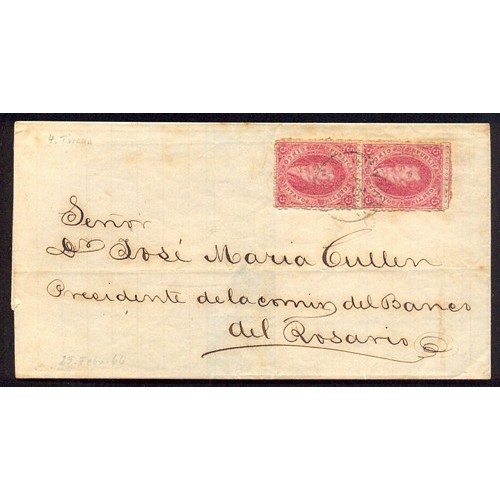 4. Tirada
Señor
Dr José Maria Cullen
Presidente de la comin del Banco
del Rosario
25-Feb-66